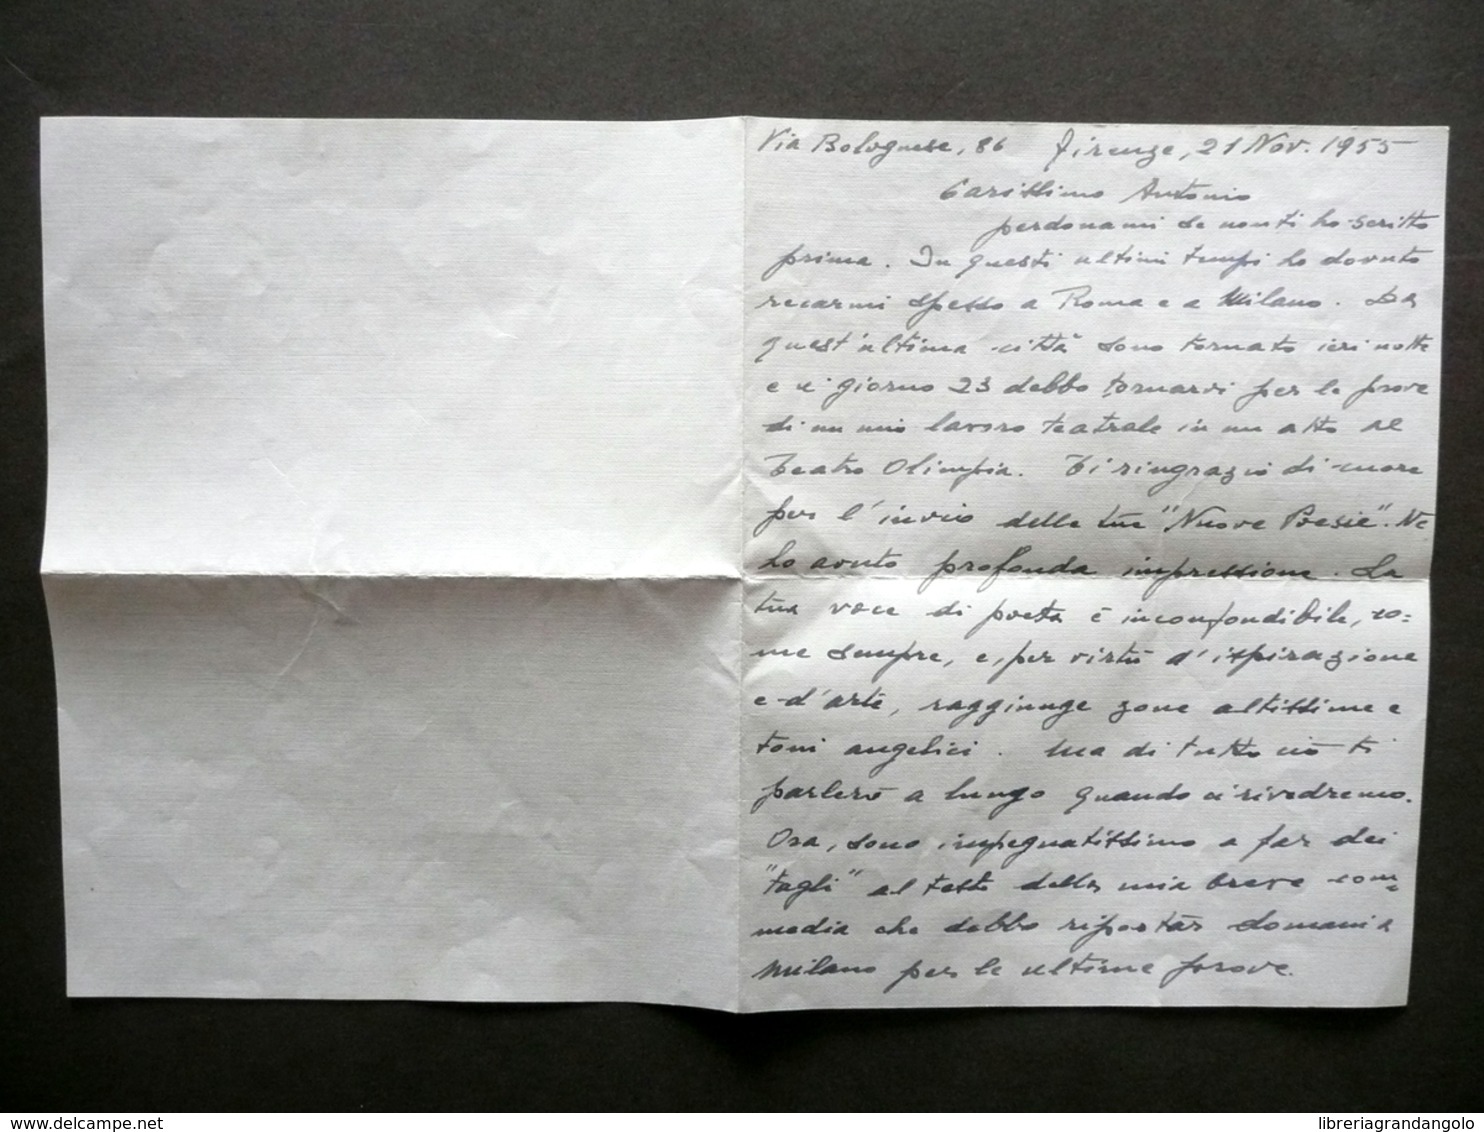 Via Bolognese, 86 Firenze, 21 Nov. 1955
Carissimo Antonio
perdonami se non ti ho scritto
prima. In questi ultimi tempi ho dovuto
recarmi spesso a Roma e a Milano. Da
quest'ultima città sono tornato ieri notte
e il giorno 23 debbo tornarvi per le prove
di un mio lavoro teatrale in un atto al
Teatro Olimpia. Ti ringrazio di cuore
per l'invio delle tue "Nuove Poesie". Ne
ho avuto profonda impressione. La
tua voce di poeta è inconfondibile, co=
me sempre, e, per virtù d'ispirazione
e d'arte, raggiunge zone altissime e
toni angelici. Ma di tutto ciò ti
parlerò a lungo quando ci rivedremo.
Ora, sono impegnatissimo a far dei
"tagli" al testo della mia breve com=
media che debbo riportar domani a
Milano per le ultime prove.
delcampe.net
libreriagrandangolo